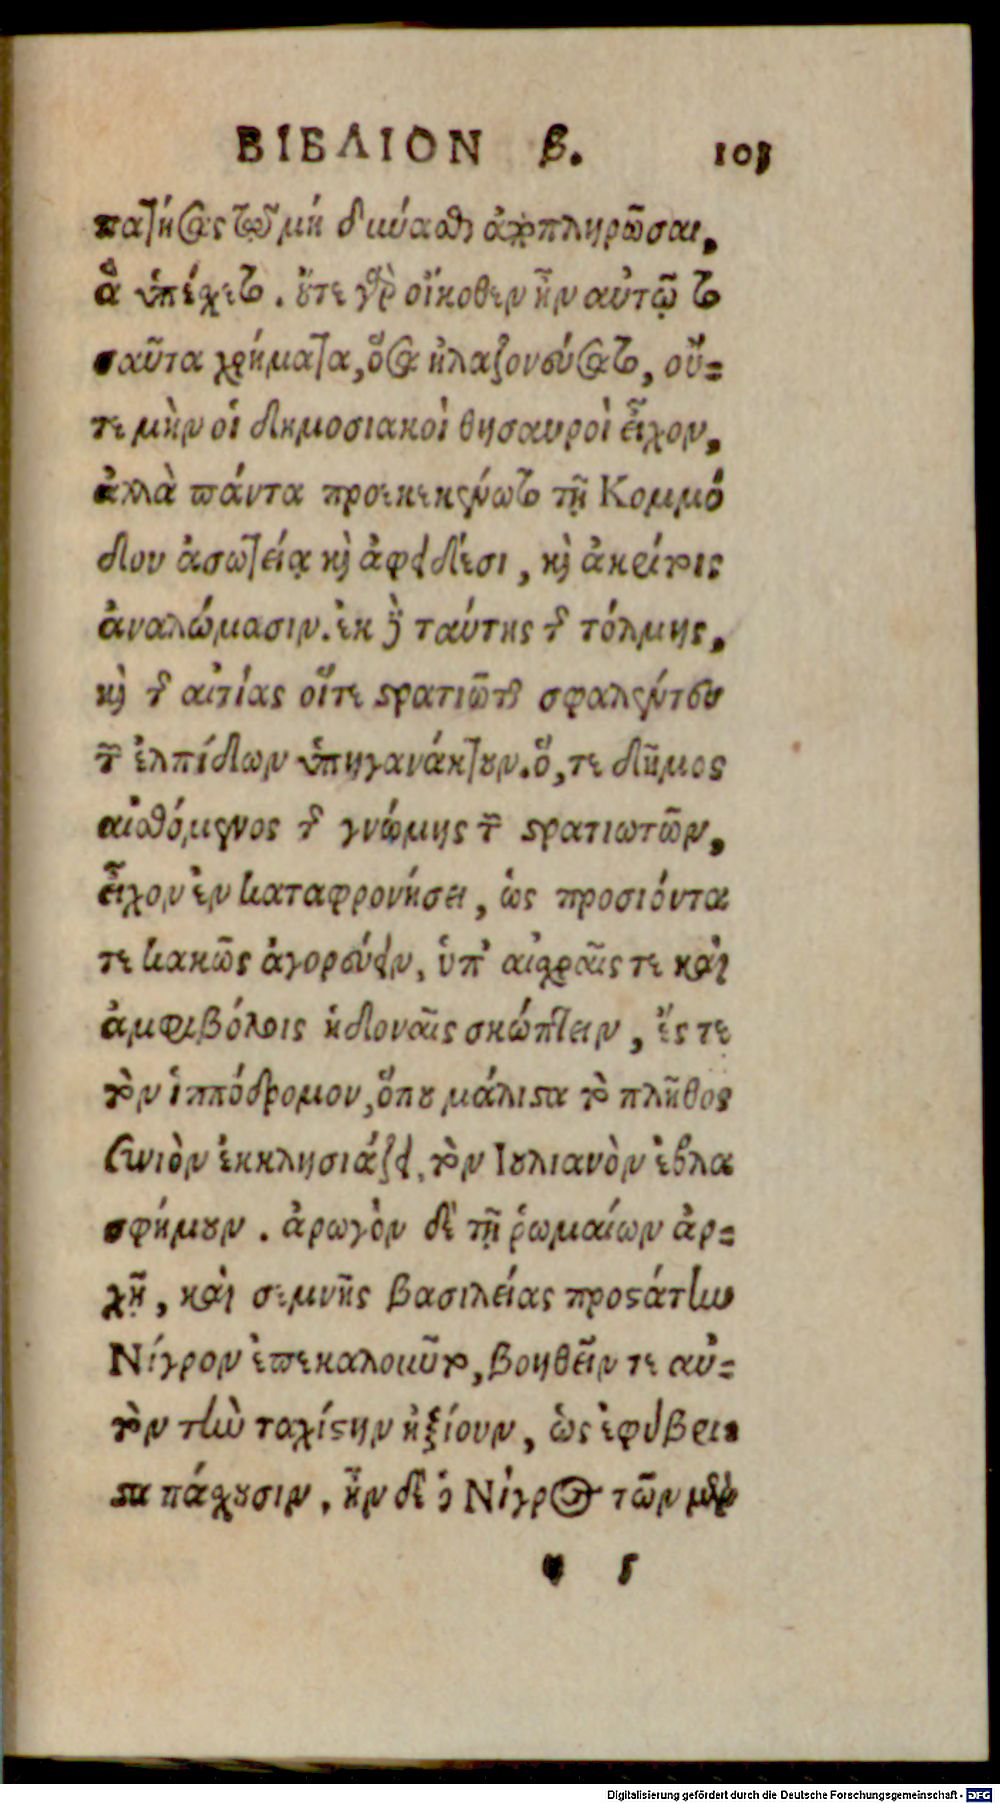 ΒΙΒΛΙΟΝ β. 103
πατήσας τῷ μὴ δύναϑζ ἀποπληρῶσαι,
ἃ ὑπέχετο. οὔτε γὰρ οἴκοθεν ἦν αὐτῷ το
σαῦτα χρήματα, ὅσα ἠλαζονεύσατο, οὔ-
τε μὴν οἱ δημοσιακοὶ θησαυροὶ εἶχον,
ἀλλὰ πάντα προεκεκένωτο τῇ Κομμό
δου ἀσωτείᾳ καὶ ἀφειδέσι, καὶ ἀκρίτοις
ἀναλώμασιν. ἐκ δὲ ταύτης τῆς τόλμης,
καὶ τῆς αἰτίας οἵτε στρατιῶται σφαλέντες
τῶν ἐλπίδων ὑπηγανάκτουν. ὅ, τε δῆμος
αἰσθόμενος τῆς γνώμης τῶν στρατιωτῶν,
εἶχον ἐν καταφρονήσει, ὡς προσιόντα
τε κακῶς ἀγορεύειν, ὑπ' αἰσχραῖς τε καὶ
ἀμφιβόλοις ἡδοναῖς σκώπτειν, ἔς τε
τὸν ἱππόδρομον, ὅπου μάλιστα τὸ πλῆθος
συνιὸν ἐκκλησιάζει, τὸν Ιουλιανὸν ἐβλα
σφήμουν. ἀρωγὸν δὲ τῇ ῥωμαίων ἀρ-
χῇ, καὶ σεμνῆς βασιλείας προστάτην
Νίγρον ἐπεκαλοιοῦτο, βοηθεῖν τε αὐ-
τὸν τὴν ταχίστην ἠξίουν, ὡς ἐφύβρι
στα πάσχουσιν. ἦν δὲ ὁ Νίγρος τῶν μὲν
5
Digitalisierung gefördert durch die Deutsche Forschungsgemeinschaft - DFG